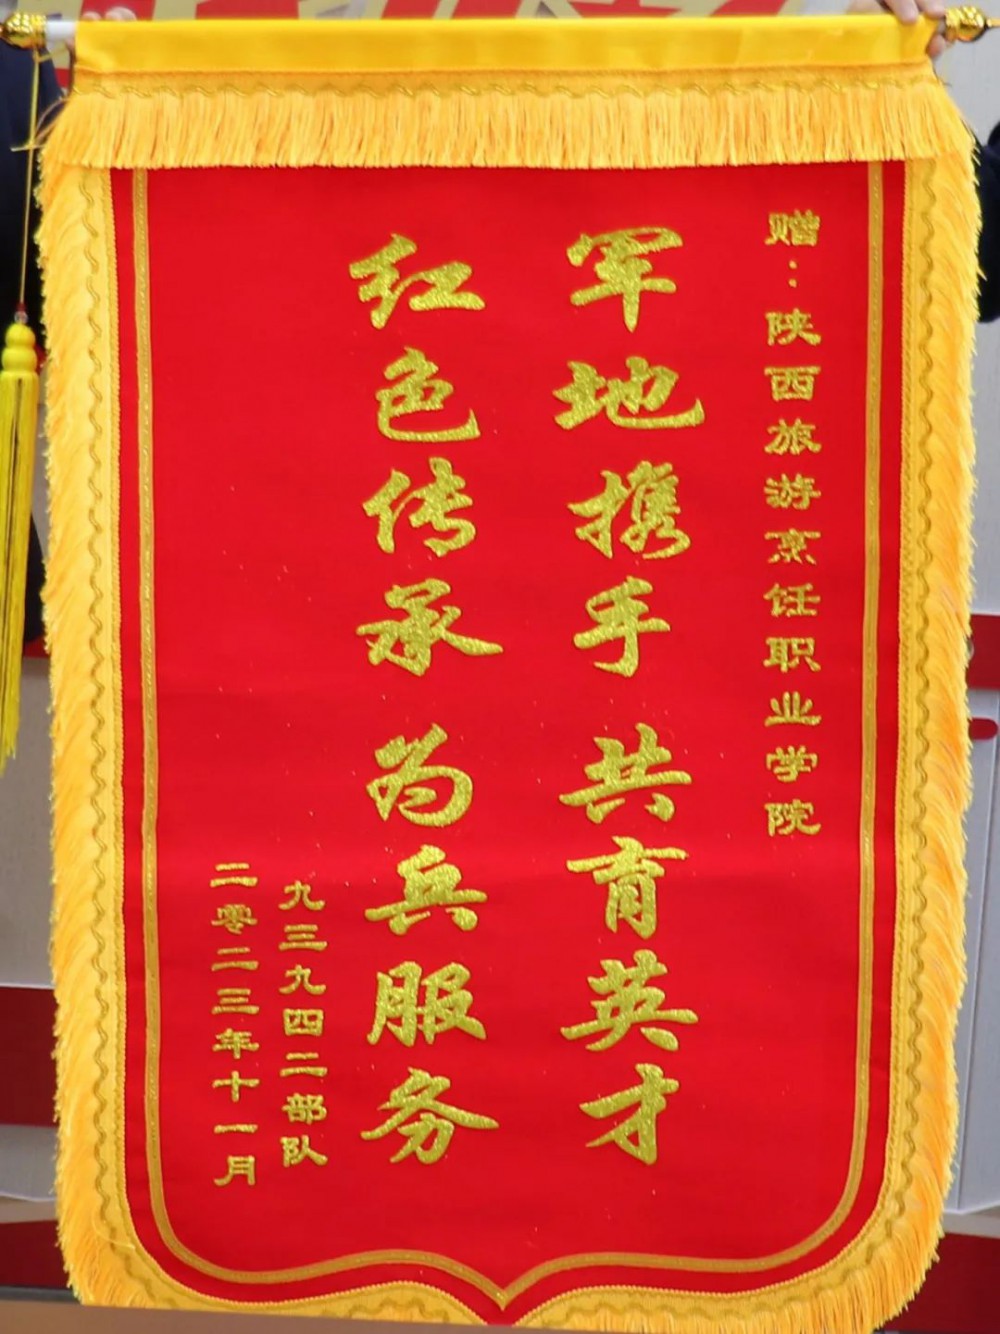 赠:陕西旅游烹饪职业学院
军地携手 共育英才
红色传承 为兵服务
九三九四二部队
二零二三年十一月